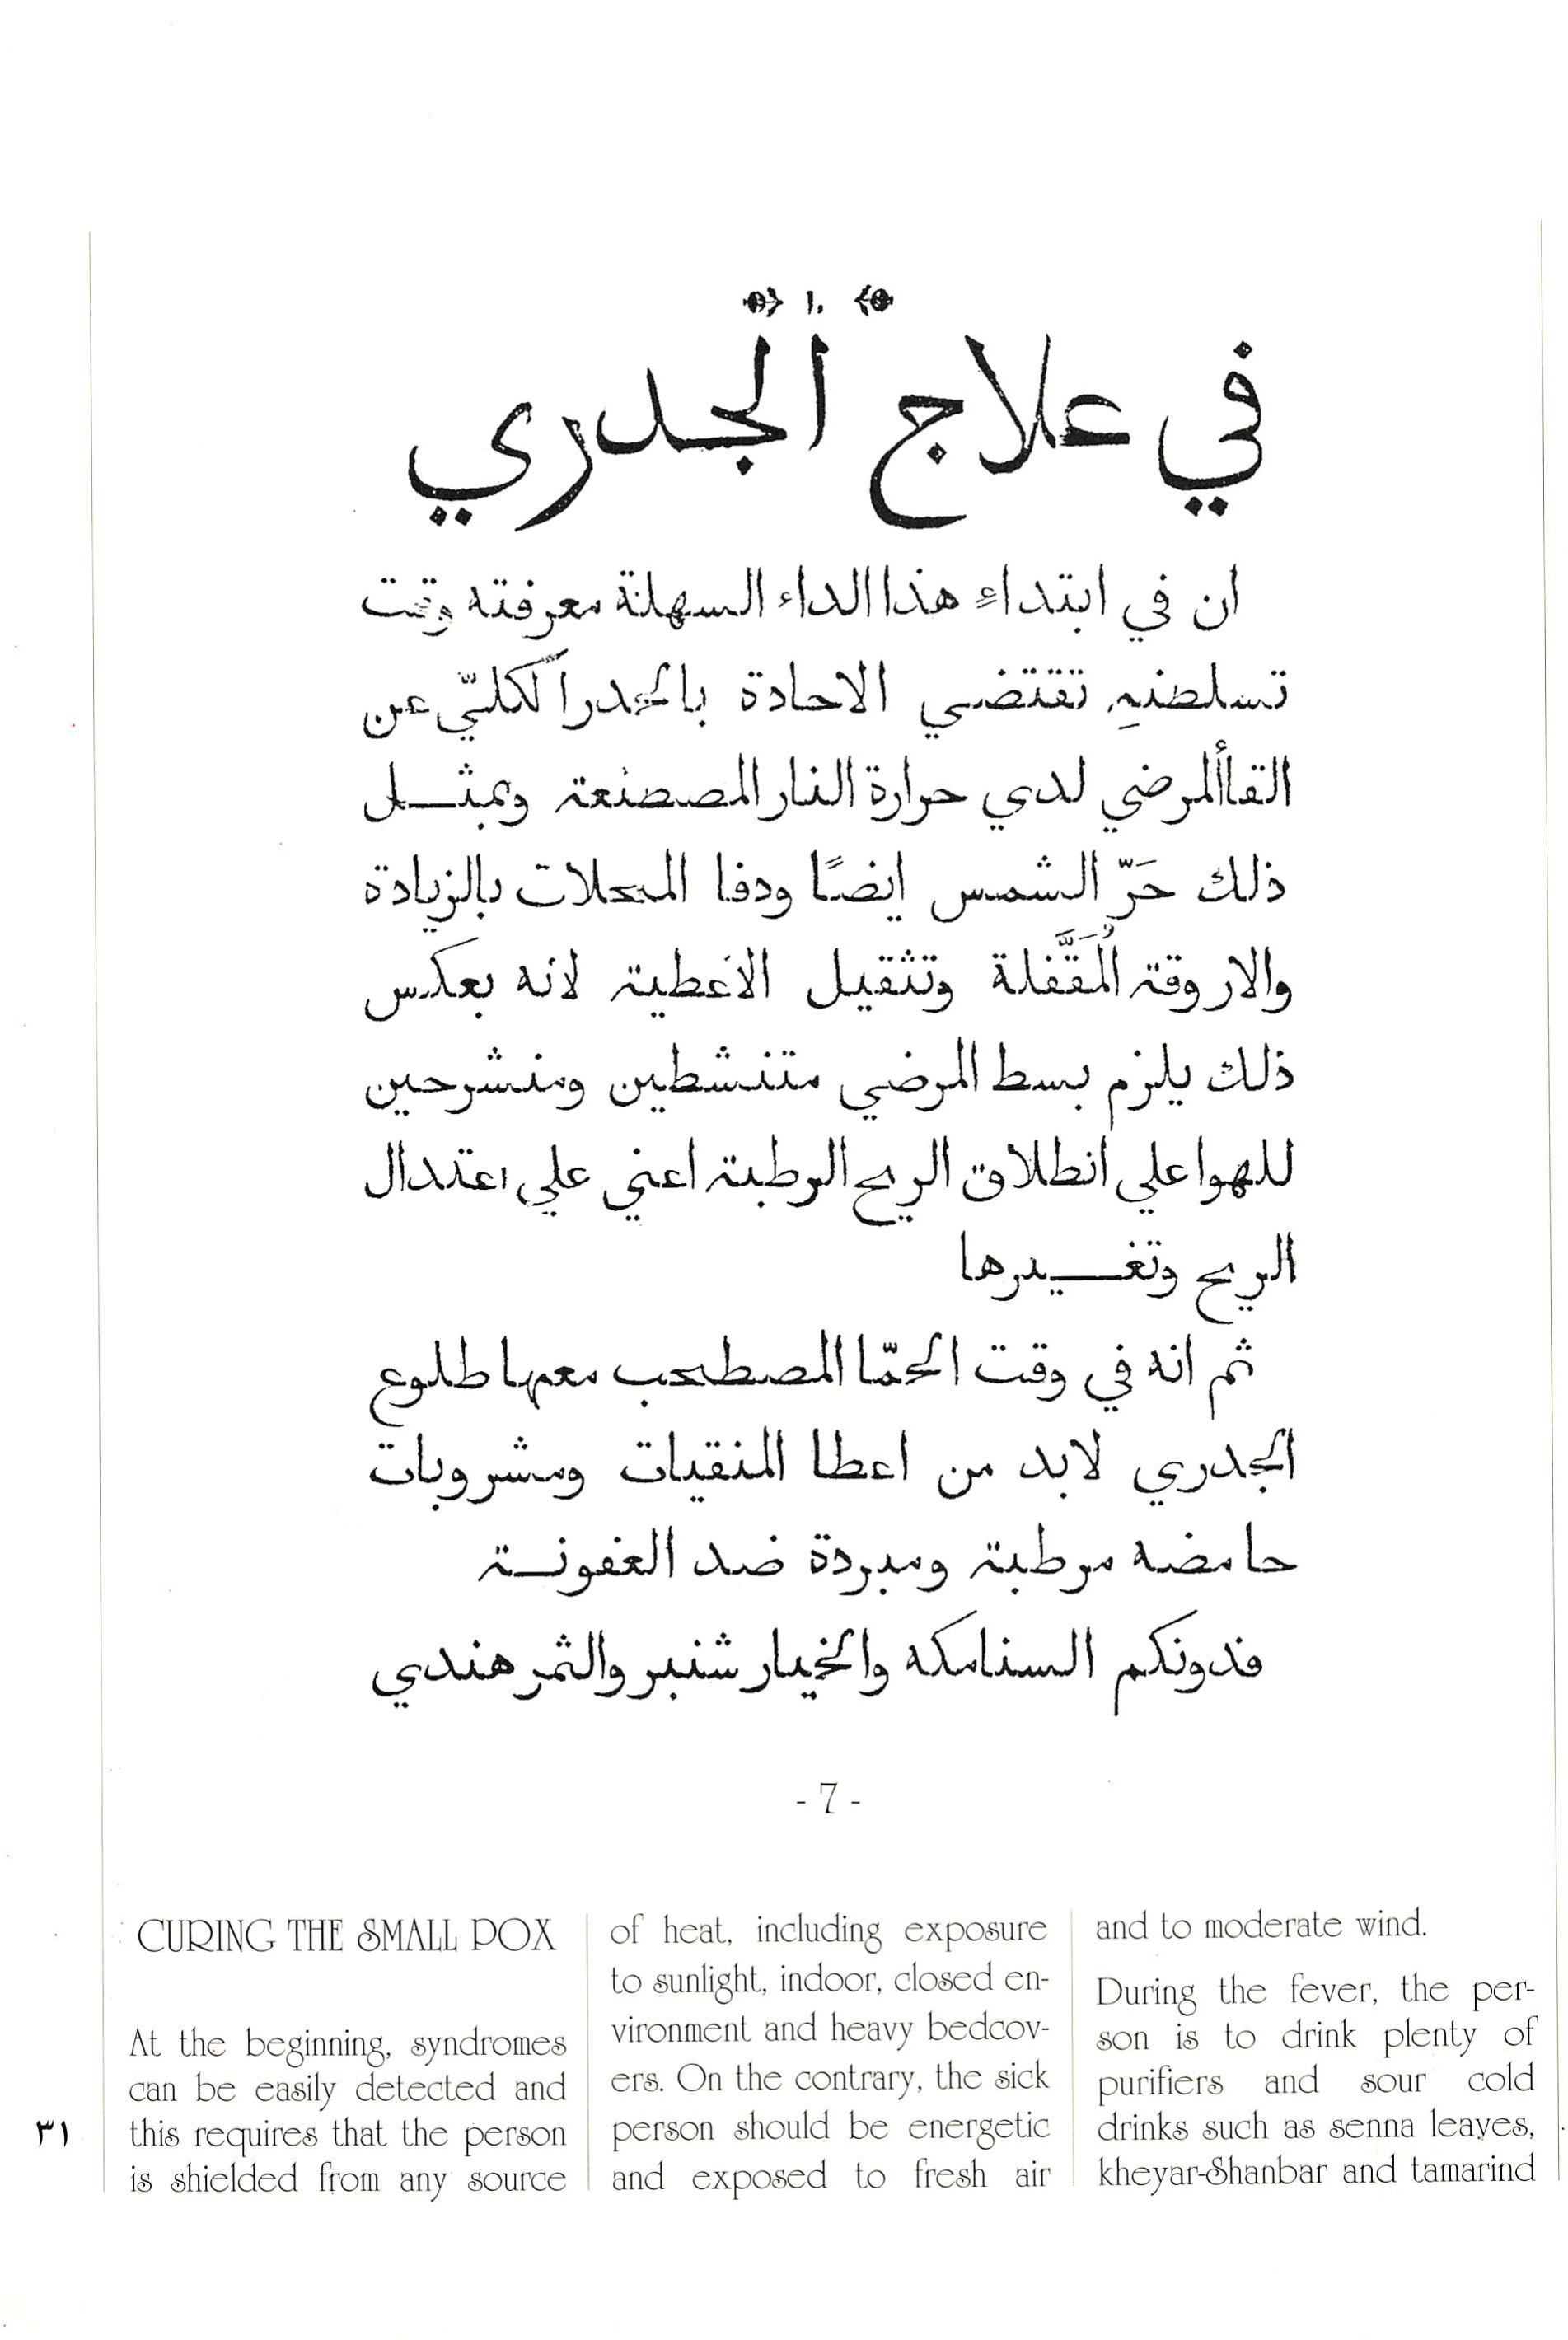 ١٠
في علاج الجدري
ان في ابتداءِ هذا الداء السهلة معرفته وقت
تسلطنهِ تقتضي الاحادة بالحدر الكليّ عن
القاألمرضي لدي حرارة النار المصطنعة وبمثل
ذلك حَرّ الشمس ايضًا ودفا المحلات بالزيادة
والاروقة المُقَفَّلة وتثقيل الاغطية لانه بعكس
ذلك يلزم بسط المرضي متنشطين ومنشرحين
للهوا علي انطلاق الريح الرطبة اعني علي اعتدال
الريح وتغيرها
ثم انه في وقت الحمّا المصطحب معها طلوع
الجدري لابد من اعطا المنقيات ومشروبات
حامضه مرطبة ومبردة ضد العفونة
فدونكم السنامكه والخيار شنبر والثمر هندي
- 7 -
CURING THE SMALL POX
At the beginning, syndromes
can be easily detected and
this requires that the person
is shielded from any source
of heat, including exposure
to sunlight, indoor, closed en-
vironment and heavy bedcov-
ers. On the contrary, the sick
person should be energetic
and exposed to fresh air
and to moderate wind.
During the fever, the per-
son is to drink plenty of
purifiers and sour cold
drinks such as senna leaves,
kheyar-Shanbar and tamarind
٣١